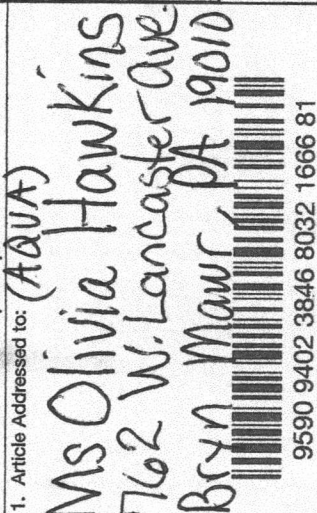 1. Article Addressed to: (AQUA)
Ms Olivia Hawkins
762 W. Lancaster Ave.
Bryn Mawr, PA 19010
9590 9402 3846 8032 1666 81